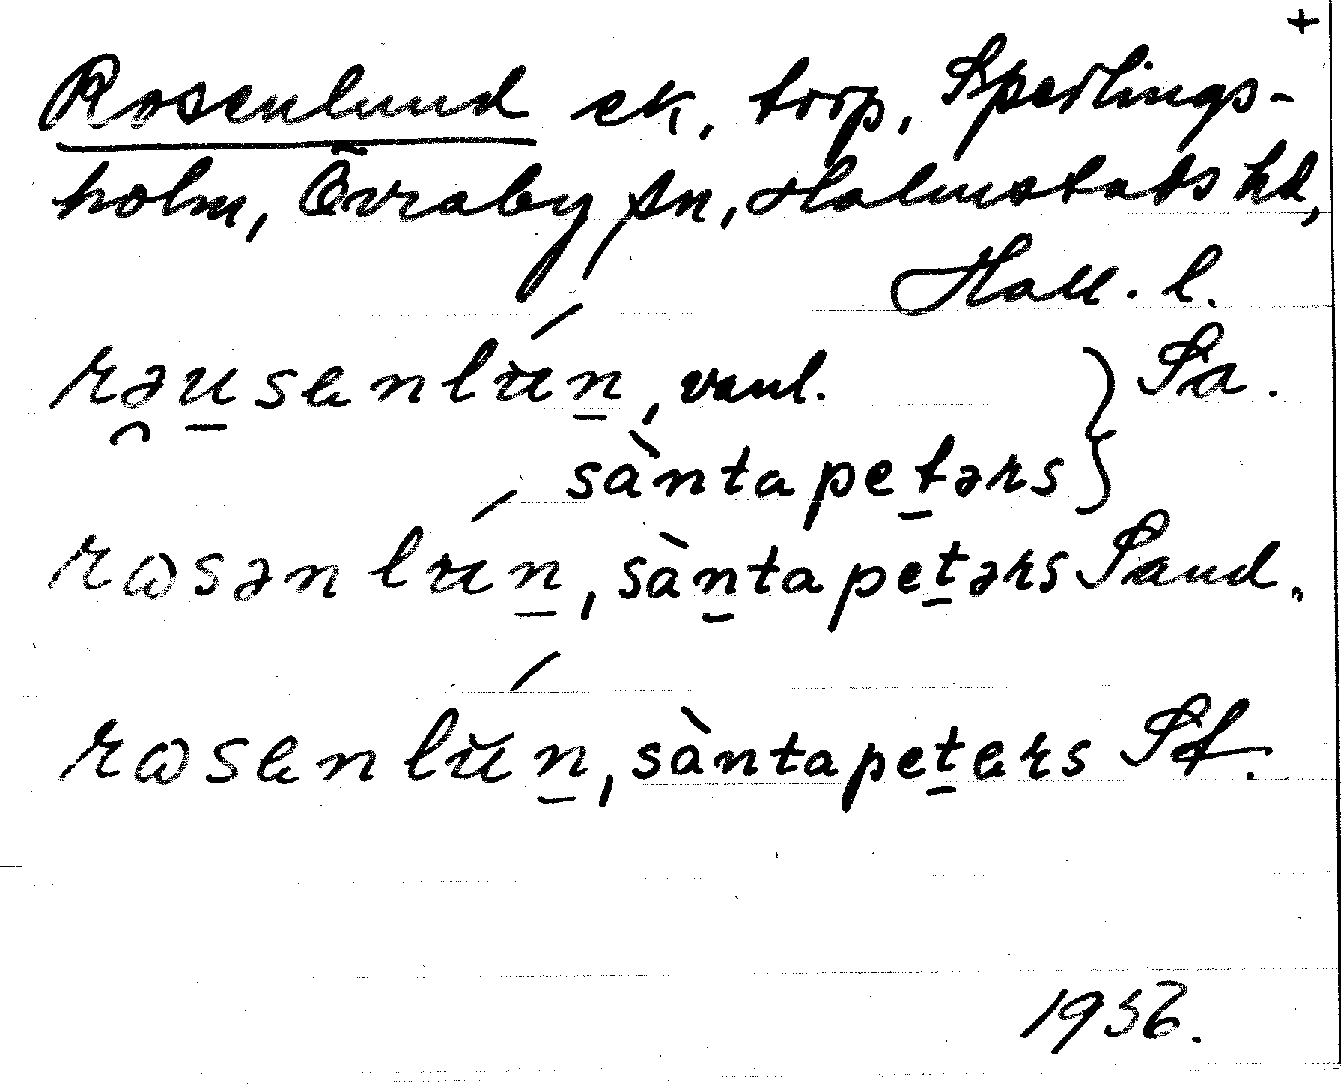 +
Rosenlund ek, torp, Sperlings-
holm, Övraby sn, Halmstads hd,
Hall. l.
rəusenlún, vanl. } Sa.
sàntapetərs }
rosənlún, sàntapetərs Sand.
rosenlún, sàntapeters Sf.
1956.